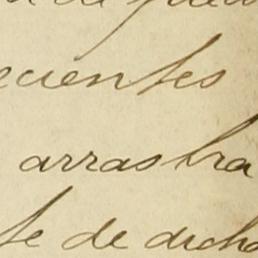 ecientes
arrastra
te de dicho